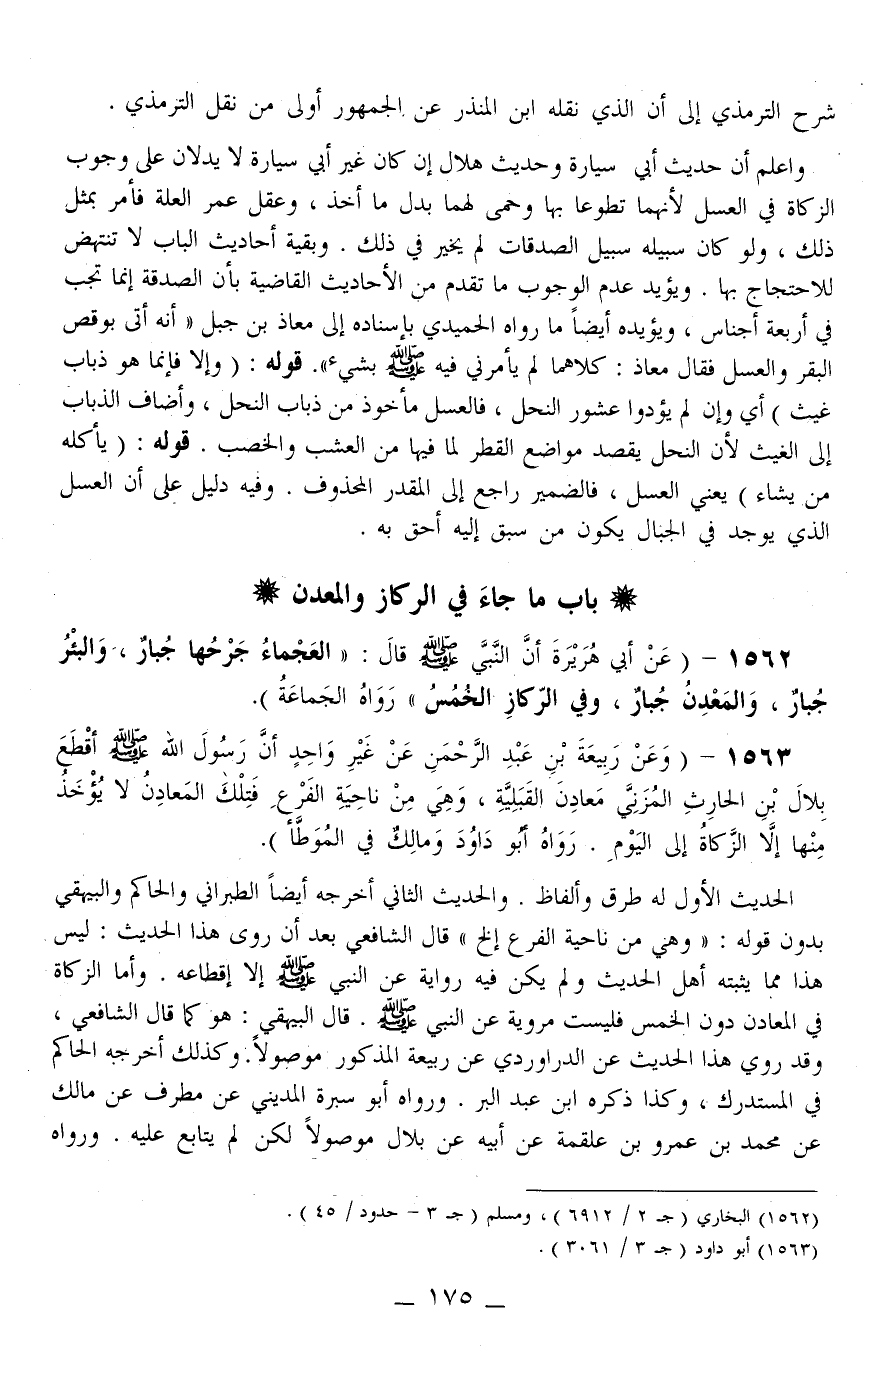 شرح الترمذي إلى أن الذي نقله ابن المنذر عن الجمهور أولى من نقل الترمذي .
واعلم أن حديث أبي سيارة وحديث هلال إن كان غير أبي سيارة لا يدلان على وجوب
الزكاة في العسل لأنهما تطوعا بها وحمى لهما بدل ما أخذ ، وعقل عمر العلة فأمر بمثل
ذلك ، ولو كان سبيله سبيل الصدقات لم يخير في ذلك . وبقية أحاديث الباب لا تنتهض
للاحتجاج بها . ويؤيد عدم الوجوب ما تقدم من الأحاديث القاضية بأن الصدقة إنما تجب
في أربعة أجناس ، ويؤيده أيضاً ما رواه الحميدي بإسناده إلى معاذ بن جبل « أنه أتى بوقص
البقر والعسل فقال معاذ : كلاهما لم يأمرني فيه ﷺ بشيء». قوله : ( وإلا فإنما هو ذباب
غيث ) أي وإن لم يؤدوا عشور النحل ، فالعسل مأخوذ من ذباب النحل ، وأضاف الذباب
إلى الغيث لأن النحل يقصد مواضع القطر لما فيها من العشب والخصب . قوله : ( يأكله
من يشاء ) يعني العسل ، فالضمير راجع إلى المقدر المحذوف . وفيه دليل على أن العسل
الذي يوجد في الجبال يكون من سبق إليه أحق به .
باب ما جاءَ في الركاز والمعدن
١٥٦٢ - ( عَنْ أبي هُرَيْرَةَ أنَّ النَّبيَّ ﷺ قالَ : « العَجْماءُ جَرْحُها جُبارٌ ، وَالبئْرُ
جُبارٌ ، وَالمَعْدِنُ جُبارٌ ، وفي الرّكازِ الخُمُسُ » رَوَاهُ الجَماعَةُ ).
١٥٦٣ - ( وَعَنْ رَبِيعَةَ بْنِ عَبْدِ الرَّحْمَنِ عَنْ غَيْرِ وَاحِدٍ أنَّ رَسُولَ الله ﷺ أقْطَعَ
بِلالَ بْنِ الحارِثِ المُزَنِيَّ مَعادِنَ القَبَلِيَّةِ ، وَهِيَ مِنْ ناحِيَةِ الفَرْعِ فَتِلْكَ المَعادِنُ لا يُؤْخَذُ
مِنْها إلَّا الزَّكاةُ إلى اليَوْمِ . رَوَاهُ أبُو دَاوُدَ وَمالِكٌ في المُوَطَّأ ).
الحديث الأول له طرق وألفاظ . والحديث الثاني أخرجه أيضاً الطبراني والحاكم والبيهقي
بدون قوله : « وهي من ناحية الفرع إلخ » قال الشافعي بعد أن روى هذا الحديث : ليس
هذا مما يثبته أهل الحديث ولم يكن فيه رواية عن النبي ﷺ إلا إقطاعه . وأما الزكاة
في المعادن دون الخمس فليست مروية عن النبي ﷺ . قال البيهقي : هو كما قال الشافعي ،
وقد روي هذا الحديث عن الدراوردي عن ربيعة المذكور موصولاً. وكذلك أخرجه الحاكم
في المستدرك ، وكذا ذكره ابن عبد البر . ورواه أبو سبرة المديني عن مطرف عن مالك
عن محمد بن عمرو بن علقمة عن أبيه عن بلال موصولاً لكن لم يتابع عليه . ورواه
(١٥٦٢) البخاري ( جـ ٢ / ٦٩١٢ ) ، ومسلم ( جـ ٣ - حدود / ٤٥ ) .
(١٥٦٣) أبو داود ( جـ ٣ / ٣٠٦١ ) .
ــ ١٧٥ ــ